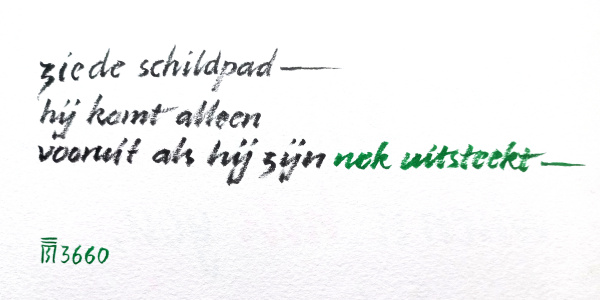 zie de schildpad —
hij komt alleen
vooruit als hij zijn nek uitsteekt —
3660